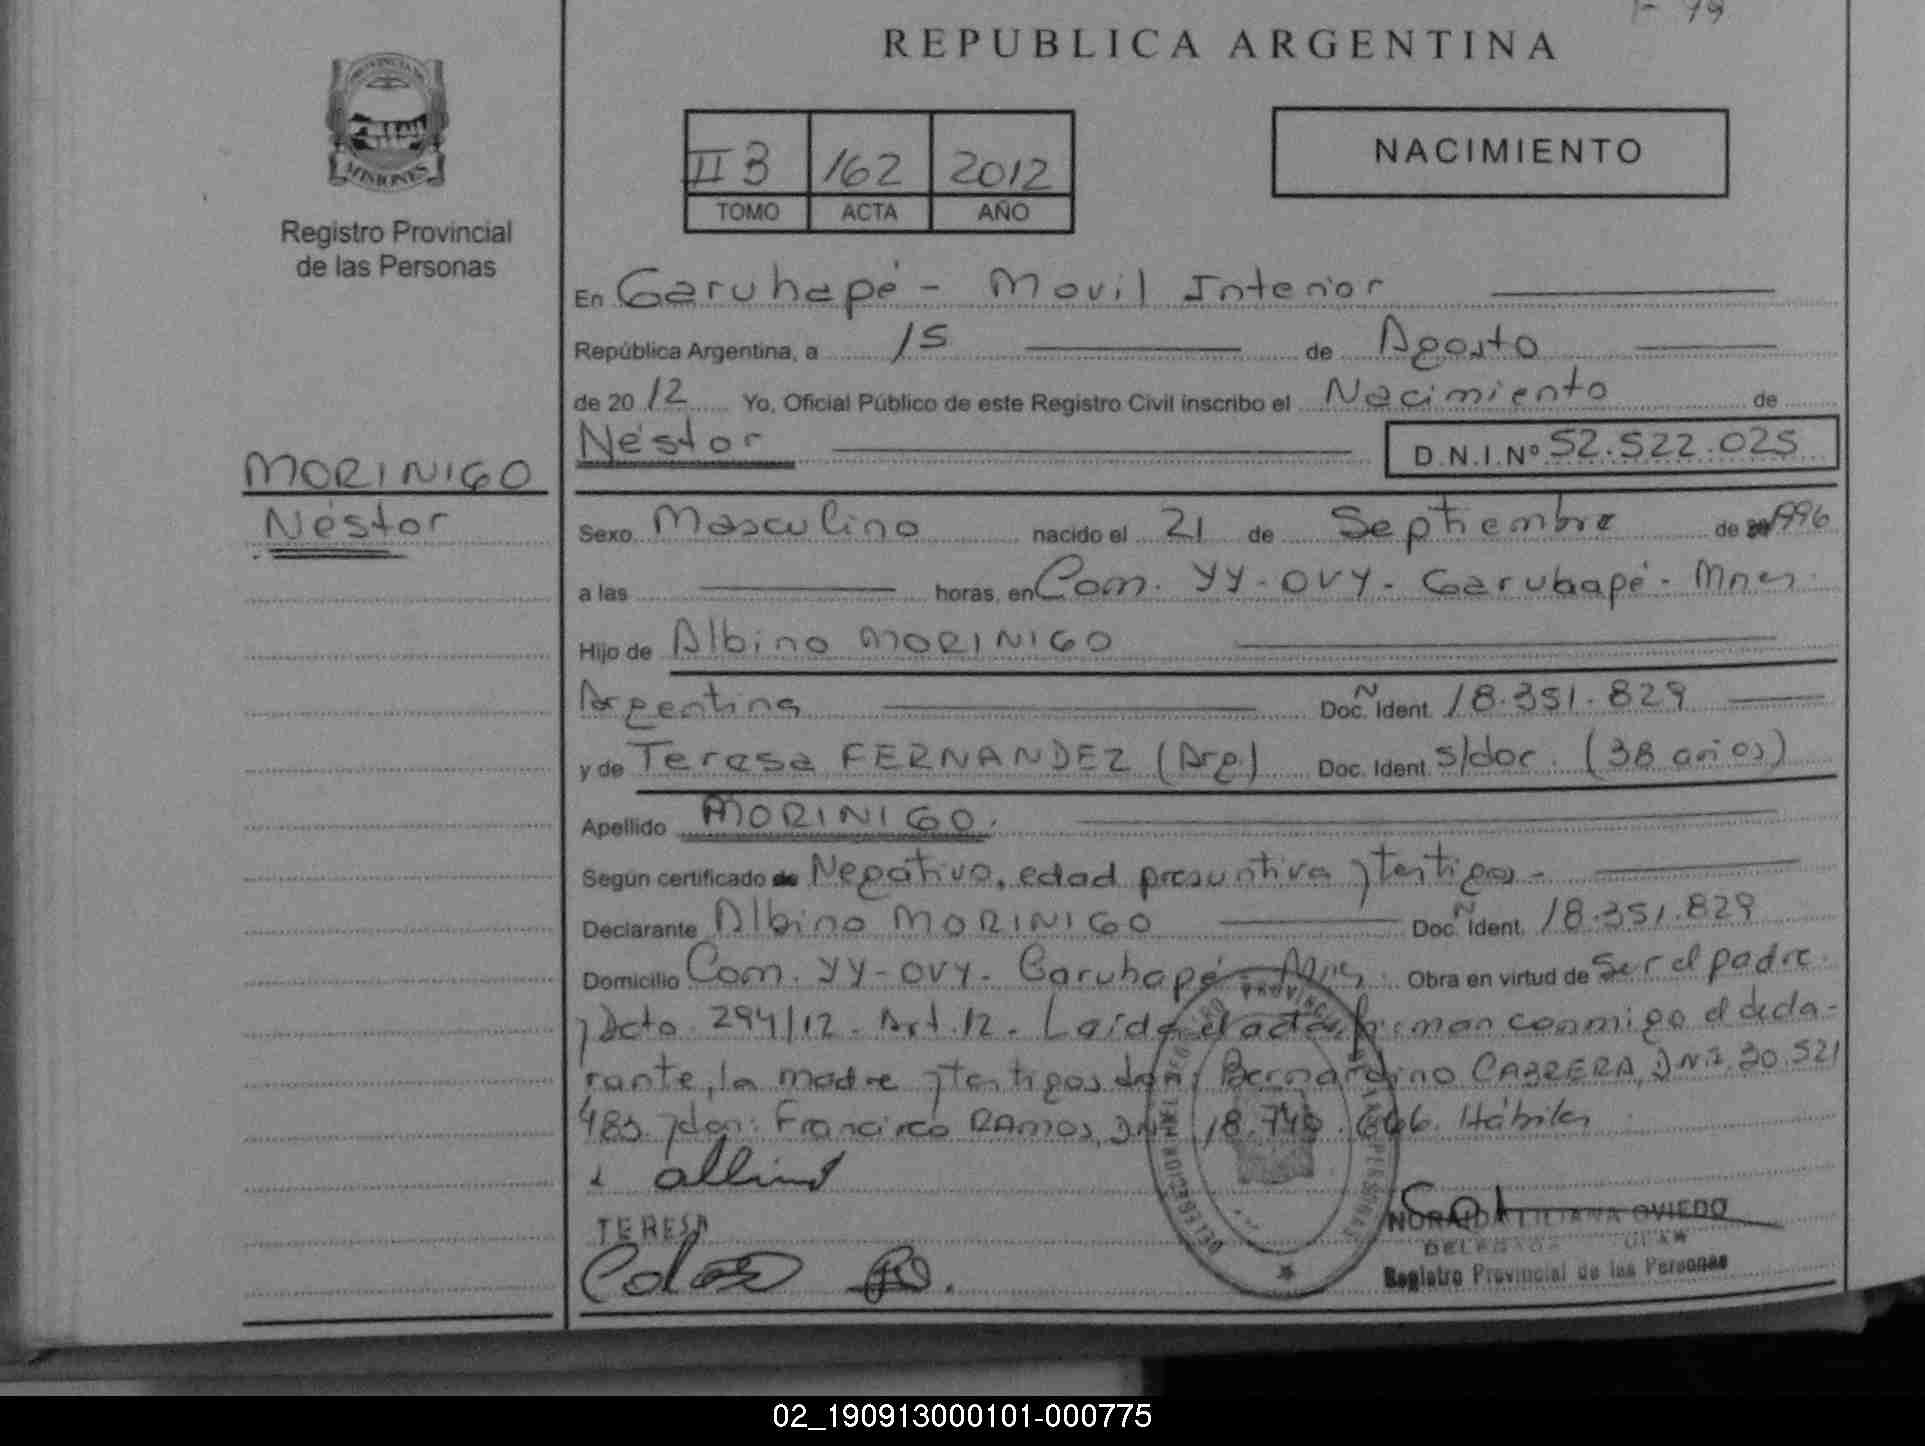 REPUBLICA ARGENTINA
PROVINCIA DE
MISIONES
Registro Provincial
de las Personas
II 3 162 2012
TOMO ACTA AÑO
NACIMIENTO
En Garuhapé - Movil Interior
República Argentina, a 15 de Agosto
de 2012 Yo, Oficial Público de este Registro Civil inscribo el Nacimiento de
Néstor D.N.I.Nº 52.522.025
MORINIGO
Néstor
Sexo Masculino nacido el 21 de Septiembre de 1996
a las horas, en Com. YY-OVY- Garuhapé - Mnes.
Hijo de Albino MORINIGO
Argentina Doc. Ñ Ident. 18.351.829
y de Teresa FERNANDEZ (Arg) Doc. Ident. s/doc. (38 años)
Apellido MORINIGO.
Según certificado de Negativo, edad presuntiva y testigos -
Declarante Albino MORINIGO Doc. Ñ Ident. 18.351.829
Domicilio Com. YY-OVY- Garuhapé - Mnes. Obra en virtud de Ser el padre
y Dcto. 294/12 - Art. 12 - Leída el acta, firman conmigo el decla-
rante, la madre y testigos don: Bernardino CABRERA, DNI. 30.521
483. y don: Francisco RAMOS, DNI 18.740.666. Hábiles
TERESA
NORAIDA LILIANA OVIEDO
Registro Provincial de las Personas
02_190913000101-000775